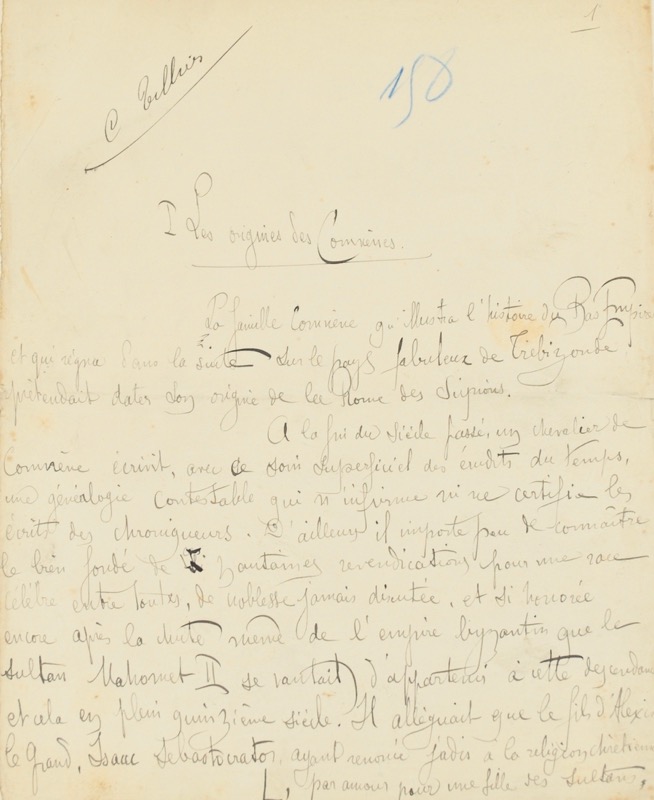 1
C
158
I Les origines des Comnènes.
La famille Comnène qu'illustra l'histoire du Bas Empire
et qui régna dans la suite sur le pays fabuleux de Trébizonde
prétendait dater son origine de la Rome des Scipions.
A la fin du siècle passé, un chevalier de
Comnène écrivit, avec ce soin superficiel des érudits du temps,
une généalogie contestable qui n'infirme ni ne certifie les
écrits des chroniqueurs. D'ailleurs il importe peu de connaître
le bien fondé de lointaines revendications pour une race
célèbre entre toutes, de noblesse jamais discutée, et si honorée
encore après la chute même de l'empire byzantin que le
sultan Mahomet II se vantait d'appartenir à cette descendance
et cela en plein quinzième siècle. Il alléguait que le fils d'Alexis
le Grand, Isaac Sebastocrator, ayant renoncé jadis à la religion chrétienne
par amour pour une fille des sultans,